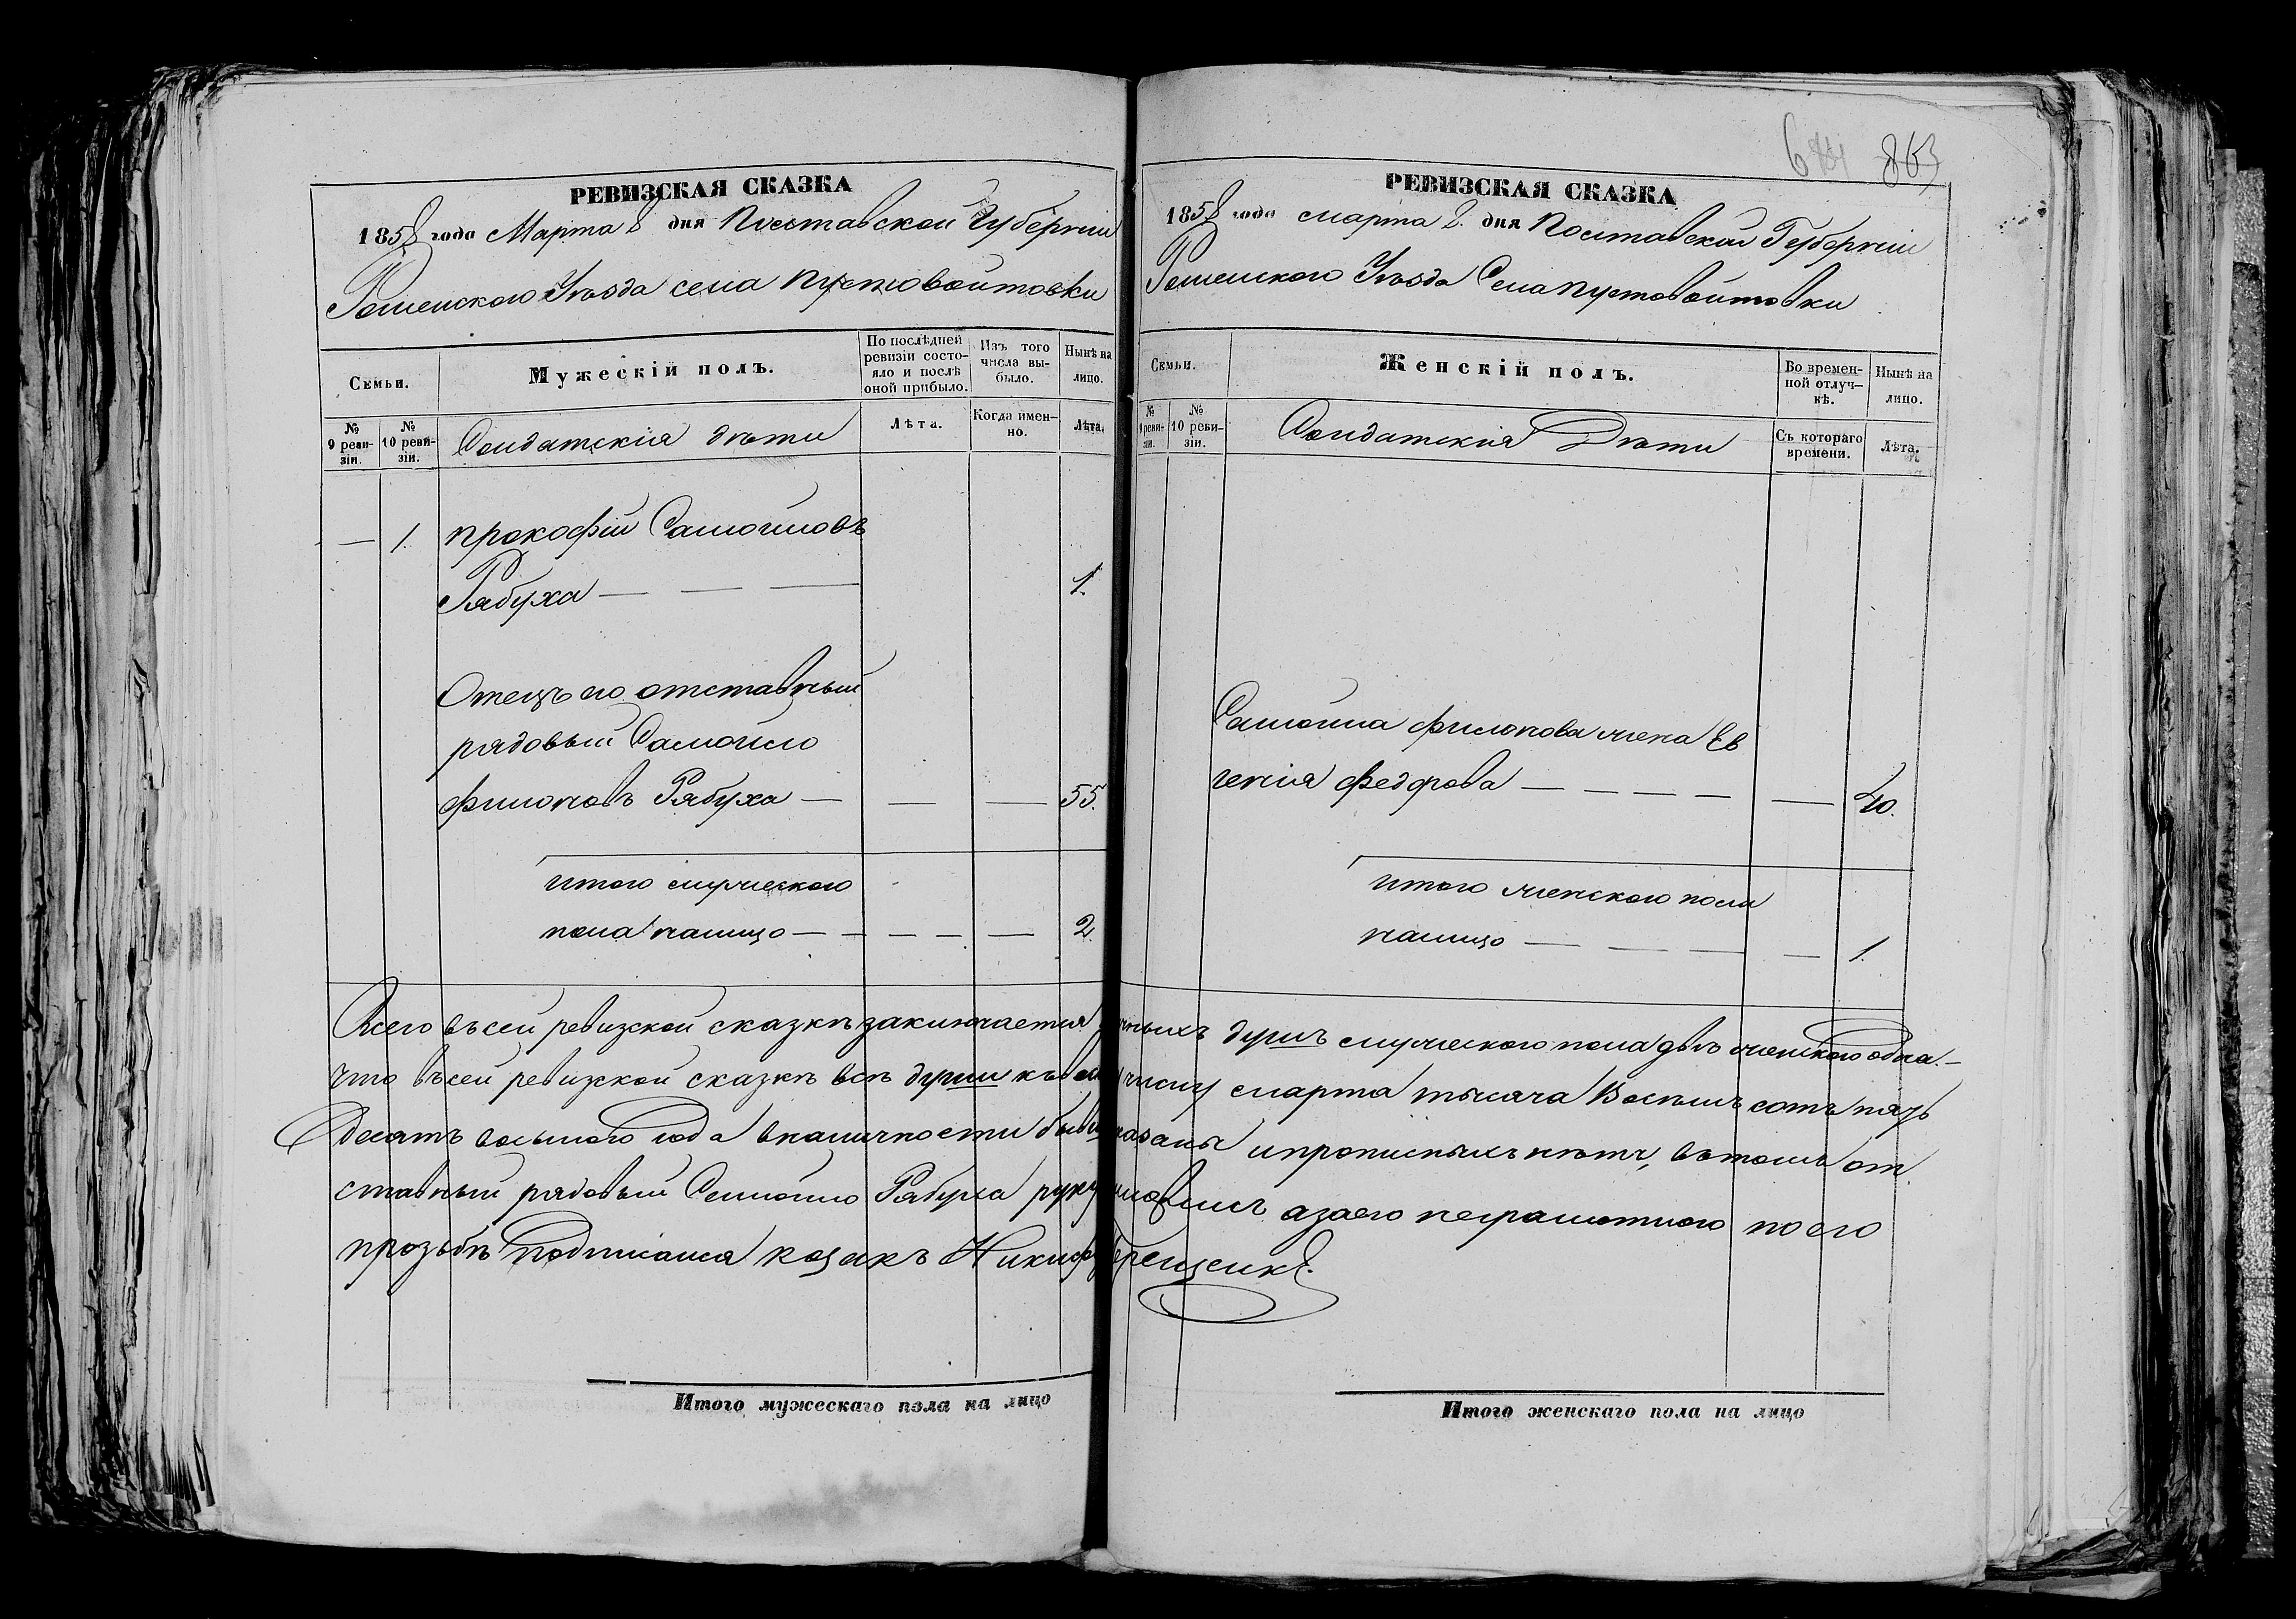 РЕВИЗСКАЯ СКАЗКА
1858 года Марта 8 дня Полтавской Губерніи
Роменского Уѣзда села Пустовойтовки
Семьи.
Мужескій полъ.
По послѣдней ревизіи состояло и послѣ оной прибыло.
Изъ того числа выбыло.
Нынѣ на лицо.
№ 9 ревизіи.
№ 10 ревизіи.
Солдатскія дѣти
Лѣта.
Когда именно.
Лѣта.
— 1. прокофій Самойловъ
Рябуха — — — 1.
Отецъ его отставный
рядовый Самойло
филоновъ Рябуха — — — 55.
итого мужеского
пола налицо — — — — — 2.
863
РЕВИЗСКАЯ СКАЗКА
1858 года марта 8. дня Полтавской Губерніи
Роменского Уѣзда Села пустовойтовки
Семьи.
Женскій полъ.
Во временной отлучкѣ.
Нынѣ на лицо.
№ 9 ревизіи.
№ 10 ревизіи.
Солдатскія Дѣти
Съ котораго времени.
Лѣта.
Самойла филонова жена Ев
генія федорова — — — — — 40.
итого женского пола
налицо — — — — 1.
Всего въсей ревизской сказкѣ заключается душъ мужеского пола двѣ женского одна.—
Что въсей ревизской сказкѣ всѣ души числу марта тысяча Восемь сотъ пять
Десятъ восьмого года вналичности были и прописныхъ нѣтъ, втомъ от
ставный рядовый Самойло Рябуха азаего неграмотного по его
прозьбѣ Подписался козакъ
Итого мужескаго пола на лицо
Итого женскаго пола на лицо